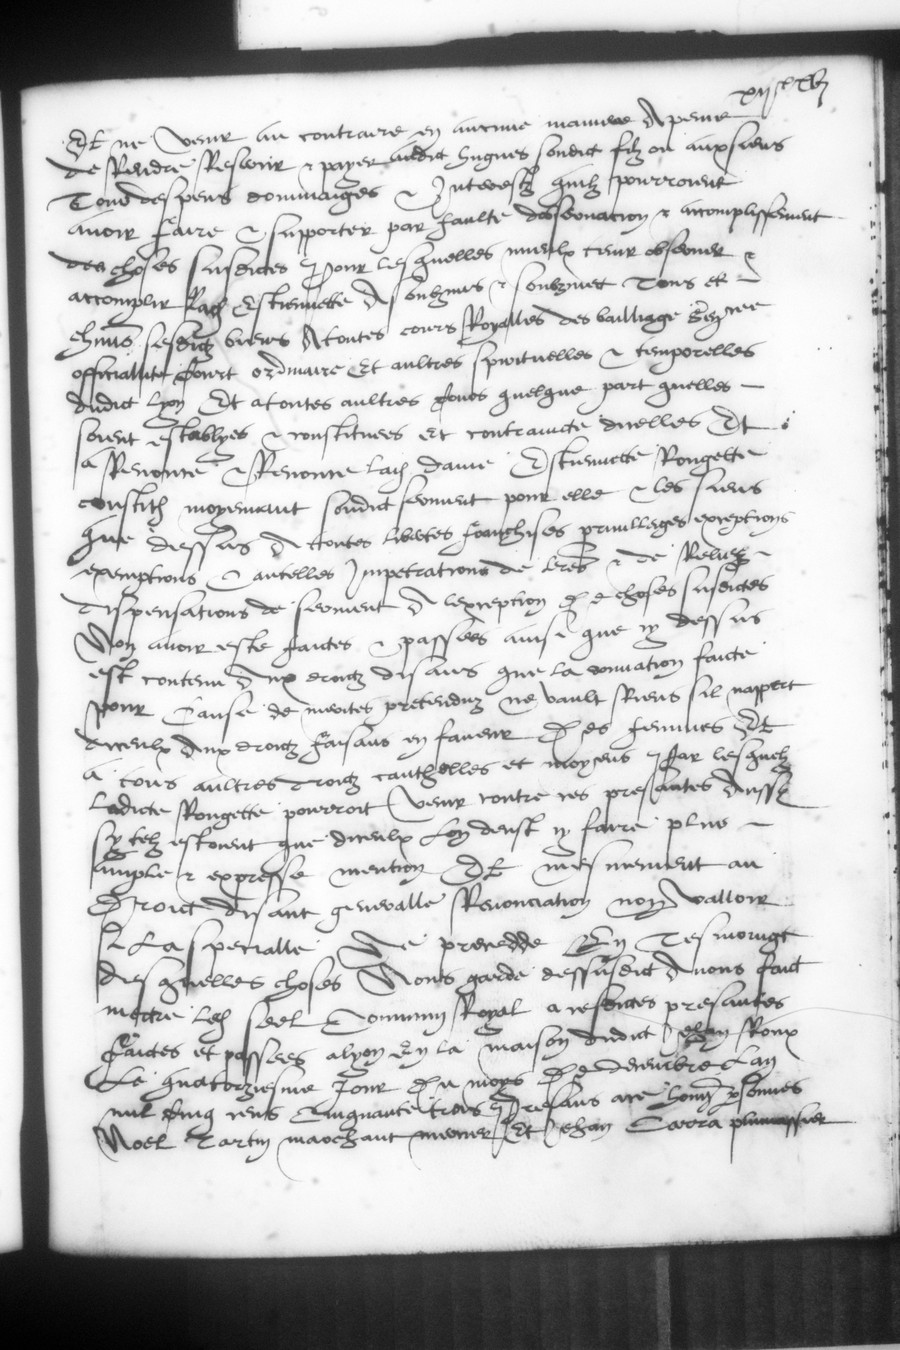 Et ne venir au contraire en aucune maniere A peine
de Rendre Restituer & payer audict hugues sondict filz ou aux siens
Tous despens dommaiges & Interestz quilz pourroient
avoir faire & supporter par faulte dobservation & acomplissement
des choses susdictes Pour lesquelles mieulx tenir observer &
accomplir Lad Estiennette A soubzmis & soubzmet Tous et
chũns sesdictz biens A toutes cours Royalles des bailliage
officialite Court ordinaire Et aultres spirituelles & temporelles
dudict lyon Et a toutes aultres cours quelque part quelles
soient establyes & constituees et contraincte dicelles Et
a Renonce & Renonce lad dame Estiennette Rougette
moyennant sondict serment pour elle & les siens
que dessus A toutes libertes franchises privilleiges exceptions
exemptions & cautelles Impetrations de lres & de
dispensations de serment A lexception de choses susdictes
Non avoir este faictes & passees ainsi que cy dessus
est contenu Aux droictz disans que la donnation faicte
pour Cause de merites pretenduz ne vault Riens sil nappert
diceulx Aux droictz faisans en faveur des femmes Et
a tous aultres droictz cauthelles et moyens Par lesquelz
Ladicte Rougette pourroit venir contre ces presantes Aussy
sy telz estoient que diceulx Lon deust cy faire plus
ample & expresse mention Et mesmement au
Droict disant generalle Renonciation non valloir
si La specialle Ne precedde En Tesmoingt
desquelles choses Nous garde dessusdict Avons faict
mectre led seel Commun Royal a cesdictes presantes
Faictes et passees a lyon En la maison dudict Jehan Roux
Le quatorziesme Jour du moys de decembre Lan
mil cinq cens Cinquante troys Presans a ce honn personnes
Noel Tartin marchant mercier Et Jehan Carra plumassier